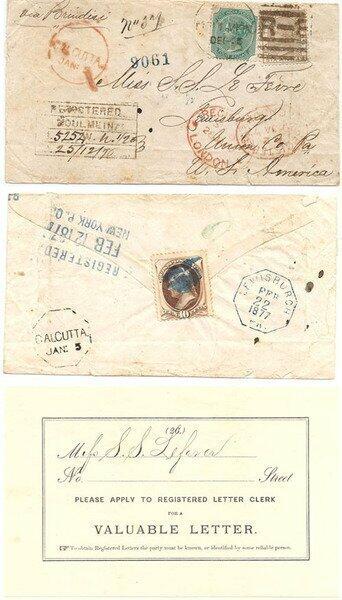 via Brindisi
No 34
9061
CALCUTTA
JAN:
DEC
Miss S. S. Le Fevre
Lewisburg
Union Co. Pa
U. S. America
REGISTERED
MOULMEIN
25/12/76
REG
LONDON
REGISTERED
FEB 12 187
NEW YORK P.O.
10
CALCUTTA
JAN: 5
LEWISBURGH
FEB
22
1877
PA.
(26.)
Miss S. S. Lefever
No. Street
PLEASE APPLY TO REGISTERED LETTER CLERK
FOR A
VALUABLE LETTER.
☞ To obtain Registered Letters the party must be known, or identified by some reliable person.